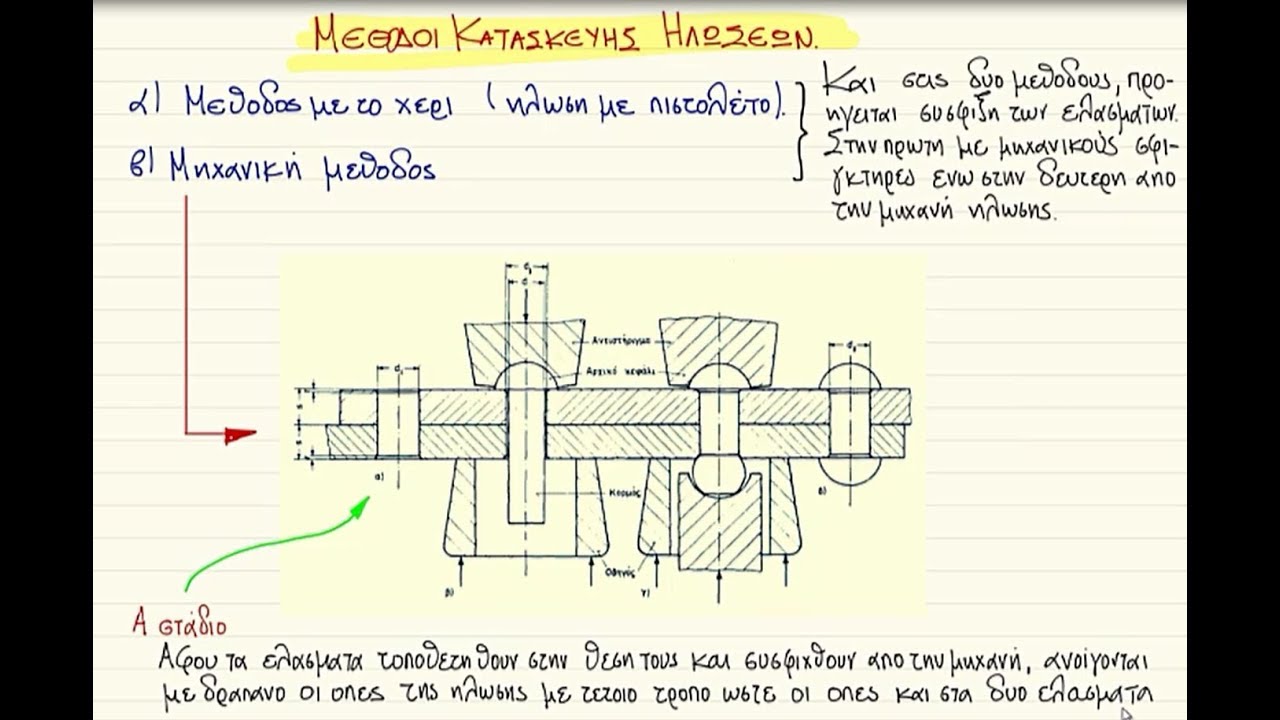 ΜΕΘΟΔΟΙ ΚΑΤΑΣΚΕΥΗΣ ΗΛΩΣΕΩΝ.
α) Μεθοδος με το χερι (ηλωση με πιστολέτο).
β) Μηχανική μεθοδος
Και στις δυο μεθοδους, προ-
ηγειται συσφιξη των ελασματων.
Στην πρωτη με μηχανικούς σφι-
γκτηρες ενω στην δευτερη απο
την μηχανή ηλωσης.
d₁
d
Αντιστήριγμα
Αρχικό κεφάλι
d₁
d₁
s
s
α)
Κορμός
δ)
Οδηγός
β)
γ)
Α στάδιο
Αφου τα ελασματα τοποθετηθουν στην θεση τους και συσφιχθουν απο την μηχανή, ανοίγονται
με δραπανο οι οπες της ηλωσης με τετοιο τροπο ωστε οι οπες και στα δυο ελασματα